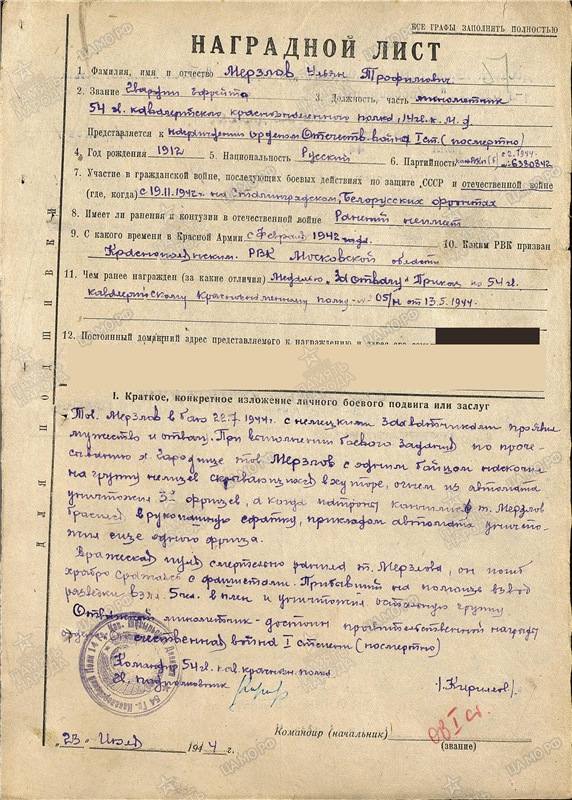 ВСЕ ГРАФЫ ЗАПОЛНЯТЬ ПОЛНОСТЬЮ
НАГРАДНОЙ ЛИСТ
1. Фамилия, имя и отчество Мерзлов Ульян Трофимович
2. Звание Гвардии Ефрейтор 3. Должность, часть минометчик
54 гв. кавалерийского краснознаменного полка, 14 гв. к. М. д
Представляется к награждению орденом Отечеств. война I ст. (посмертно)
4. Год рождения 1912 5. Национальность Русский 6. Партийность с 2. 1944 № 6380842
7. Участие в гражданской войне, последующих боевых действиях по защите СССР и отечественной войне
(где, когда) с 19.11.1942 г. на Сталинградском, Белорусских фронтах
8. Имеет ли ранения и контузии в отечественной войне Ранений не имеет
9. С какого времени в Красной Армии с Февраля 1942 года. 10. Каким РВК призван
РВК Московской области
11. Чем ранее награжден (за какие отличия) Медалью "За отвагу" Приказ по 54 гв.
кавалерийскому Краснознаменному полку № 05/н от 13.5.1944.
12. Постоянный домашний адрес представляемого к награждению и адрес его семьи
I. Краткое, конкретное изложение личного боевого подвига или заслуг
Тов. Мерзлов в бою 22.7.1944 г. с немецкими захватчиками проявил
мужество и отвагу. При выполнении боевого задания по проче-
сыванию х. Городище тов Мерзлов с одним бойцом наскочил
на группу немцев скрывающихся в хуторе, огнем из автомата
уничтожил 3х фрицев, а когда патроны кончились т. Мерзлов
бросился в рукопашную схватку, прикладом автомата уничто-
жил еще одного фрица.
Вражеская пуля смертельно ранила т. Мерзлова, он погиб
храбро сражаясь с фашистами. Прибывший на помощь взвод
разведки взял 5 чел. в плен и уничтожил остальную группу
Отважный минометчик - достоин правительственной награды
ордена Отечественная война I степени (посмертно)
Командир 54 гв. кав. краснозн. полка
гв. подполковник /Кириллов/.
Командир (начальник)
(звание)
"23" Июля 1944 г.
ОВ I ст.
ДЛЯ ПОДШИВКИ
ЦАМО РФ